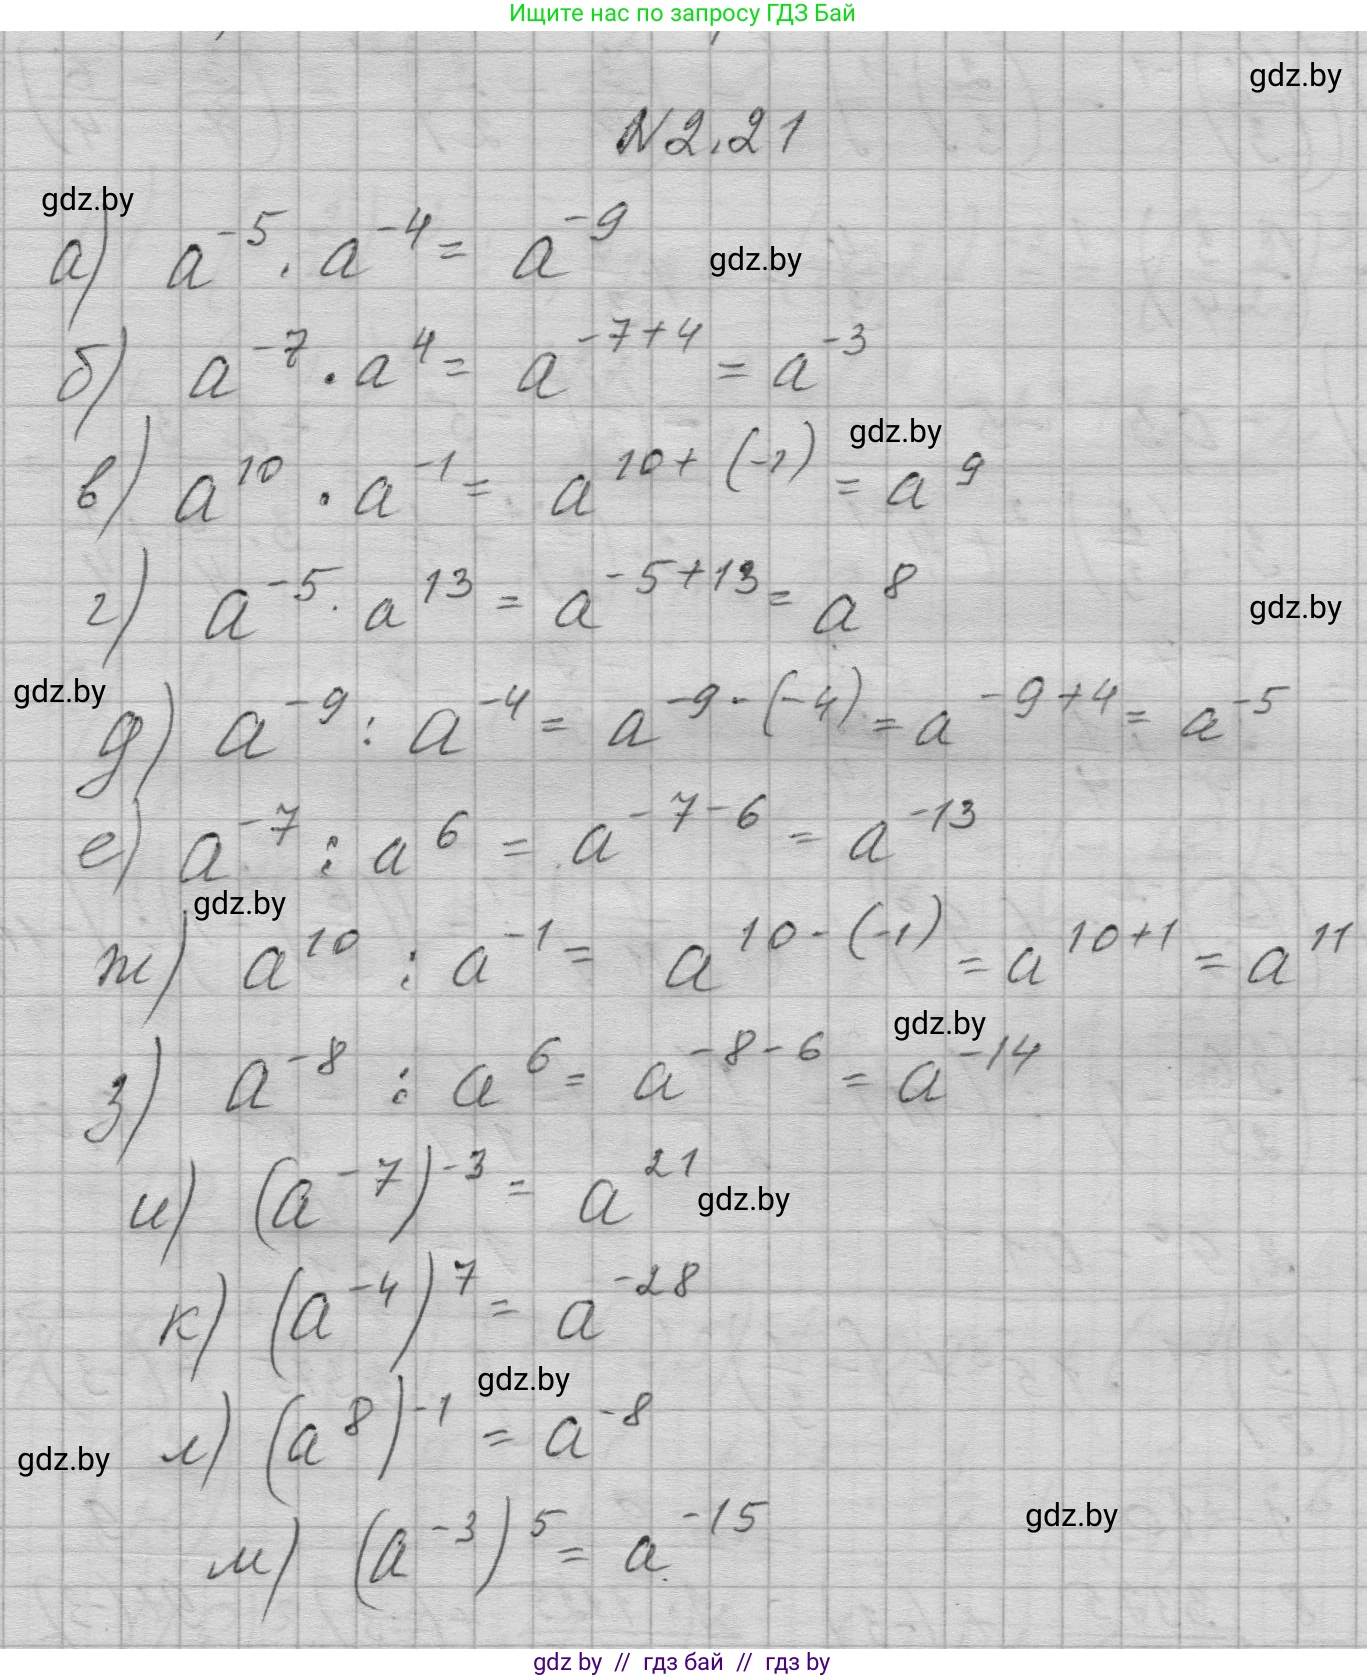 Ищите нас по запросу ГДЗ Бай
gdz.by
N2.21
gdz.by
а) a^{-5} · a^{-4} = a^{-9}
gdz.by
б) a^{-7} · a^{4} = a^{-7+4} = a^{-3}
gdz.by
в) a^{10} · a^{-1} = a^{10+(-1)} = a^{9}
г) a^{-5} · a^{13} = a^{-5+13} = a^{8}
gdz.by
gdz.by
д) a^{-9} : a^{-4} = a^{-9-(-4)} = a^{-9+4} = a^{-5}
е) a^{-7} : a^{6} = a^{-7-6} = a^{-13}
gdz.by
ж) a^{10} : a^{-1} = a^{10-(-1)} = a^{10+1} = a^{11}
gdz.by
з) a^{-8} : a^{6} = a^{-8-6} = a^{-14}
и) (a^{-7})^{-3} = a^{21}
gdz.by
к) (a^{-4})^{7} = a^{-28}
gdz.by
л) (a^{8})^{-1} = a^{-8}
gdz.by
gdz.by
м) (a^{-3})^{5} = a^{-15}
gdz by // гдз бай // гдз by